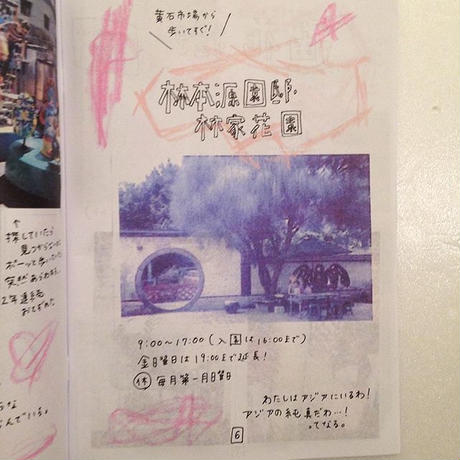 黄石市場から
歩いてすぐ!
林本源園邸
林家花園
9:00〜17:00(入園は16:00まで)
金日曜日は19:00まで延長!
休 毎月第一月曜日
わたしはアジアにいるわ!
アジアの純真だわ…!
ってなる。
6
↑
探していたら
見つからないのに
ボーッと歩いてたら
突然あらわれる。
2年連続
おとずれた